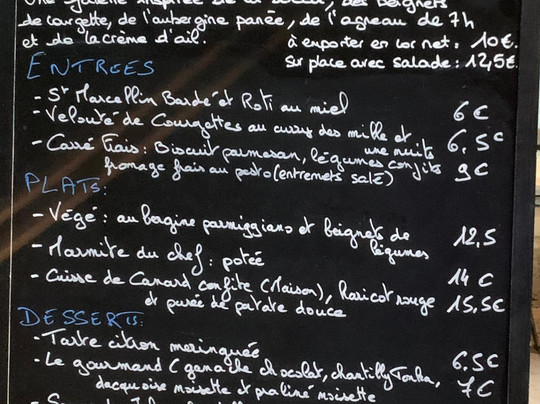 Une galette inspirée de la des beignets
de courgette, de l'aubergine panée, de l'agneau de 7h
et de la crème d'ail.
à emporter en cornet : 10€.
sur place avec salade : 12,5€.
ENTREES
- St Marcellin Bardé et Roti au miel 6€
- Velouté de Courgettes au curry des mille et une nuits 6,5€
- Carré Frais : Biscuit parmesan, légumes confits 9€
fromage frais au pesto (entremets salé)
PLATS :
- Végé : aubergine parmiggiano et beignets de légumes 12,5
- Marmite du chef : potée 14€
- Cuisse de Canard confite (Maison), Haricot rouge 15,5€
et purée de patate douce
DESSERTS :
- Tarte citron meringuée 6,5€
- Le gourmand (ganache chocolat, chantilly Tonka, 7€
dacquoise noisette et praliné noisette